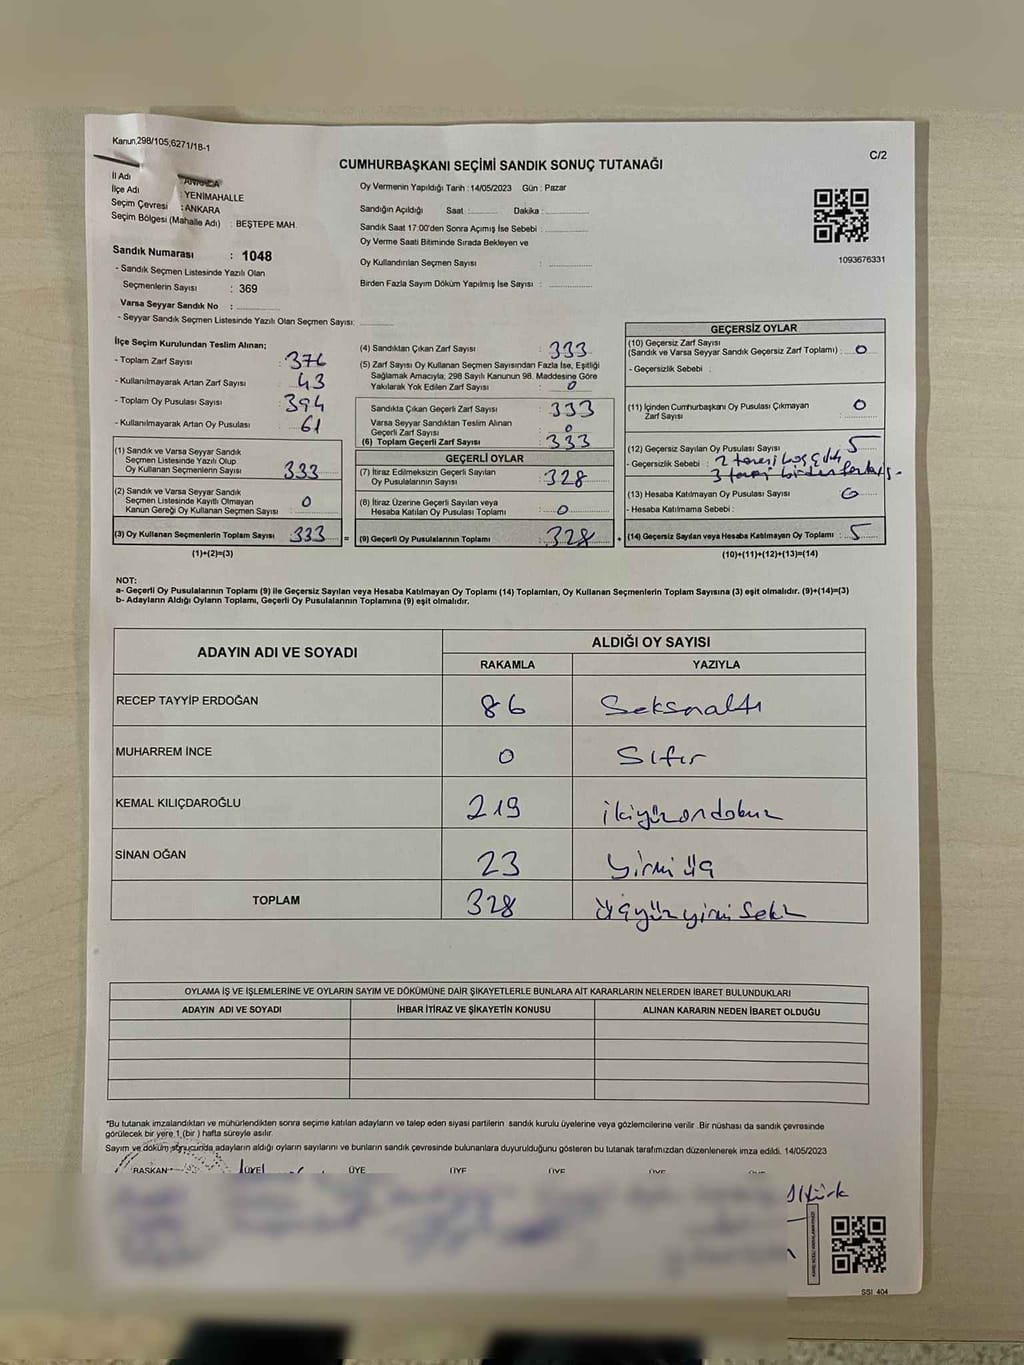 Kanun,298/105,6271/18-1
C/2
CUMHURBAŞKANI SEÇİMİ SANDIK SONUÇ TUTANAĞI
İl Adı : ANKARA
İlçe Adı : YENİMAHALLE
Seçim Çevresi : ANKARA
Seçim Bölgesi (Mahalle Adı) : BEŞTEPE MAH.
Sandık Numarası : 1048
- Sandık Seçmen Listesinde Yazılı Olan
Seçmenlerin Sayısı : 369
Varsa Seyyar Sandık No :
- Seyyar Sandık Seçmen Listesinde Yazılı Olan Seçmen Sayısı:
Oy Vermenin Yapıldığı Tarih : 14/05/2023 Gün : Pazar
Sandığın Açıldığı Saat : Dakika :
Sandık Saat 17:00'den Sonra Açılmış İse Sebebi :
Oy Verme Saati Bitiminde Sırada Bekleyen ve
Oy Kullandırılan Seçmen Sayısı :
Birden Fazla Sayım Döküm Yapılmış İse Sayısı :
1093676331
İlçe Seçim Kurulundan Teslim Alınan;
- Toplam Zarf Sayısı : 376
- Kullanılmayarak Artan Zarf Sayısı : 43
- Toplam Oy Pusulası Sayısı : 394
- Kullanılmayarak Artan Oy Pusulası : 61
(1) Sandık ve Varsa Seyyar Sandık
Seçmen Listesinde Yazılı Olup
Oy Kullanan Seçmenlerin Sayısı : 333
(2) Sandık ve Varsa Seyyar Sandık
Seçmen Listesinde Kayıtlı Olmayan
Kanun Gereği Oy Kullanan Seçmen Sayısı : 0
(3) Oy Kullanan Seçmenlerin Toplam Sayısı : 333 =
(1)+(2)=(3)
(4) Sandıktan Çıkan Zarf Sayısı : 333
(5) Zarf Sayısı Oy Kullanan Seçmen Sayısından Fazla İse, Eşitliği
Sağlamak Amacıyla; 298 Sayılı Kanunun 98. Maddesine Göre
Yakılarak Yok Edilen Zarf Sayısı : 0
Sandıkta Çıkan Geçerli Zarf Sayısı : 333
Varsa Seyyar Sandıktan Teslim Alınan
Geçerli Zarf Sayısı : 0
(6) Toplam Geçerli Zarf Sayısı : 333
GEÇERLİ OYLAR
(7) İtiraz Edilmeksizin Geçerli Sayılan
Oy Pusulalarının Sayısı : 328
(8) İtiraz Üzerine Geçerli Sayılan veya
Hesaba Katılan Oy Pusulası Toplamı : 0
(9) Geçerli Oy Pusulalarının Toplamı : 328 +
GEÇERSİZ OYLAR
(10) Geçersiz Zarf Sayısı
(Sandık ve Varsa Seyyar Sandık Geçersiz Zarf Toplamı) : 0
- Geçersizlik Sebebi :
(11) İçinden Cumhurbaşkanı Oy Pusulası Çıkmayan
Zarf Sayısı : 0
(12) Geçersiz Sayılan Oy Pusulası Sayısı : 5
- Geçersizlik Sebebi : 2 tanesi boş çıktı,
3 tanesi birden fazla
(13) Hesaba Katılmayan Oy Pusulası Sayısı : 0
- Hesaba Katılmama Sebebi :
(14) Geçersiz Sayılan veya Hesaba Katılmayan Oy Toplamı : 5
(10)+(11)+(12)+(13)=(14)
NOT:
a- Geçerli Oy Pusulalarının Toplamı (9) ile Geçersiz Sayılan veya Hesaba Katılmayan Oy Toplamı (14) Toplamları, Oy Kullanan Seçmenlerin Toplam Sayısına (3) eşit olmalıdır. (9)+(14)=(3)
b- Adayların Aldığı Oyların Toplamı, Geçerli Oy Pusulalarının Toplamına (9) eşit olmalıdır.
ADAYIN ADI VE SOYADI
ALDIĞI OY SAYISI
RAKAMLA YAZIYLA
RECEP TAYYİP ERDOĞAN 86 Seksenaltı
MUHARREM İNCE 0 Sıfır
KEMAL KILIÇDAROĞLU 219 ikiyüzondokuz
SİNAN OĞAN 23 yirmi üç
TOPLAM 328 üçyüzyirmi sekiz
OYLAMA İŞ VE İŞLEMLERİNE VE OYLARIN SAYIM VE DÖKÜMÜNE DAİR ŞİKAYETLERLE BUNLARA AİT KARARLARIN NELERDEN İBARET BULUNDUKLARI
ADAYIN ADI VE SOYADI İHBAR İTİRAZ VE ŞİKAYETİN KONUSU ALINAN KARARIN NEDEN İBARET OLDUĞU
*Bu tutanak imzalandıktan ve mühürlendikten sonra seçime katılan adayların ve talep eden siyasi partilerin sandık kurulu üyelerine veya gözlemcilerine verilir. Bir nüshası da sandık çevresinde
görülecek bir yere 1 (bir) hafta süreyle asılır.
Sayım ve döküm sonucunda adayların aldığı oyların sayılarını ve bunların sandık çevresinde bulunanlara duyurulduğunu gösteren bu tutanak tarafımızdan düzenlenerek imza edildi. 14/05/2023
BAŞKAN ÜYE ÜYE ÜYE ÜYE ÜYE ÜYE
SSI 404